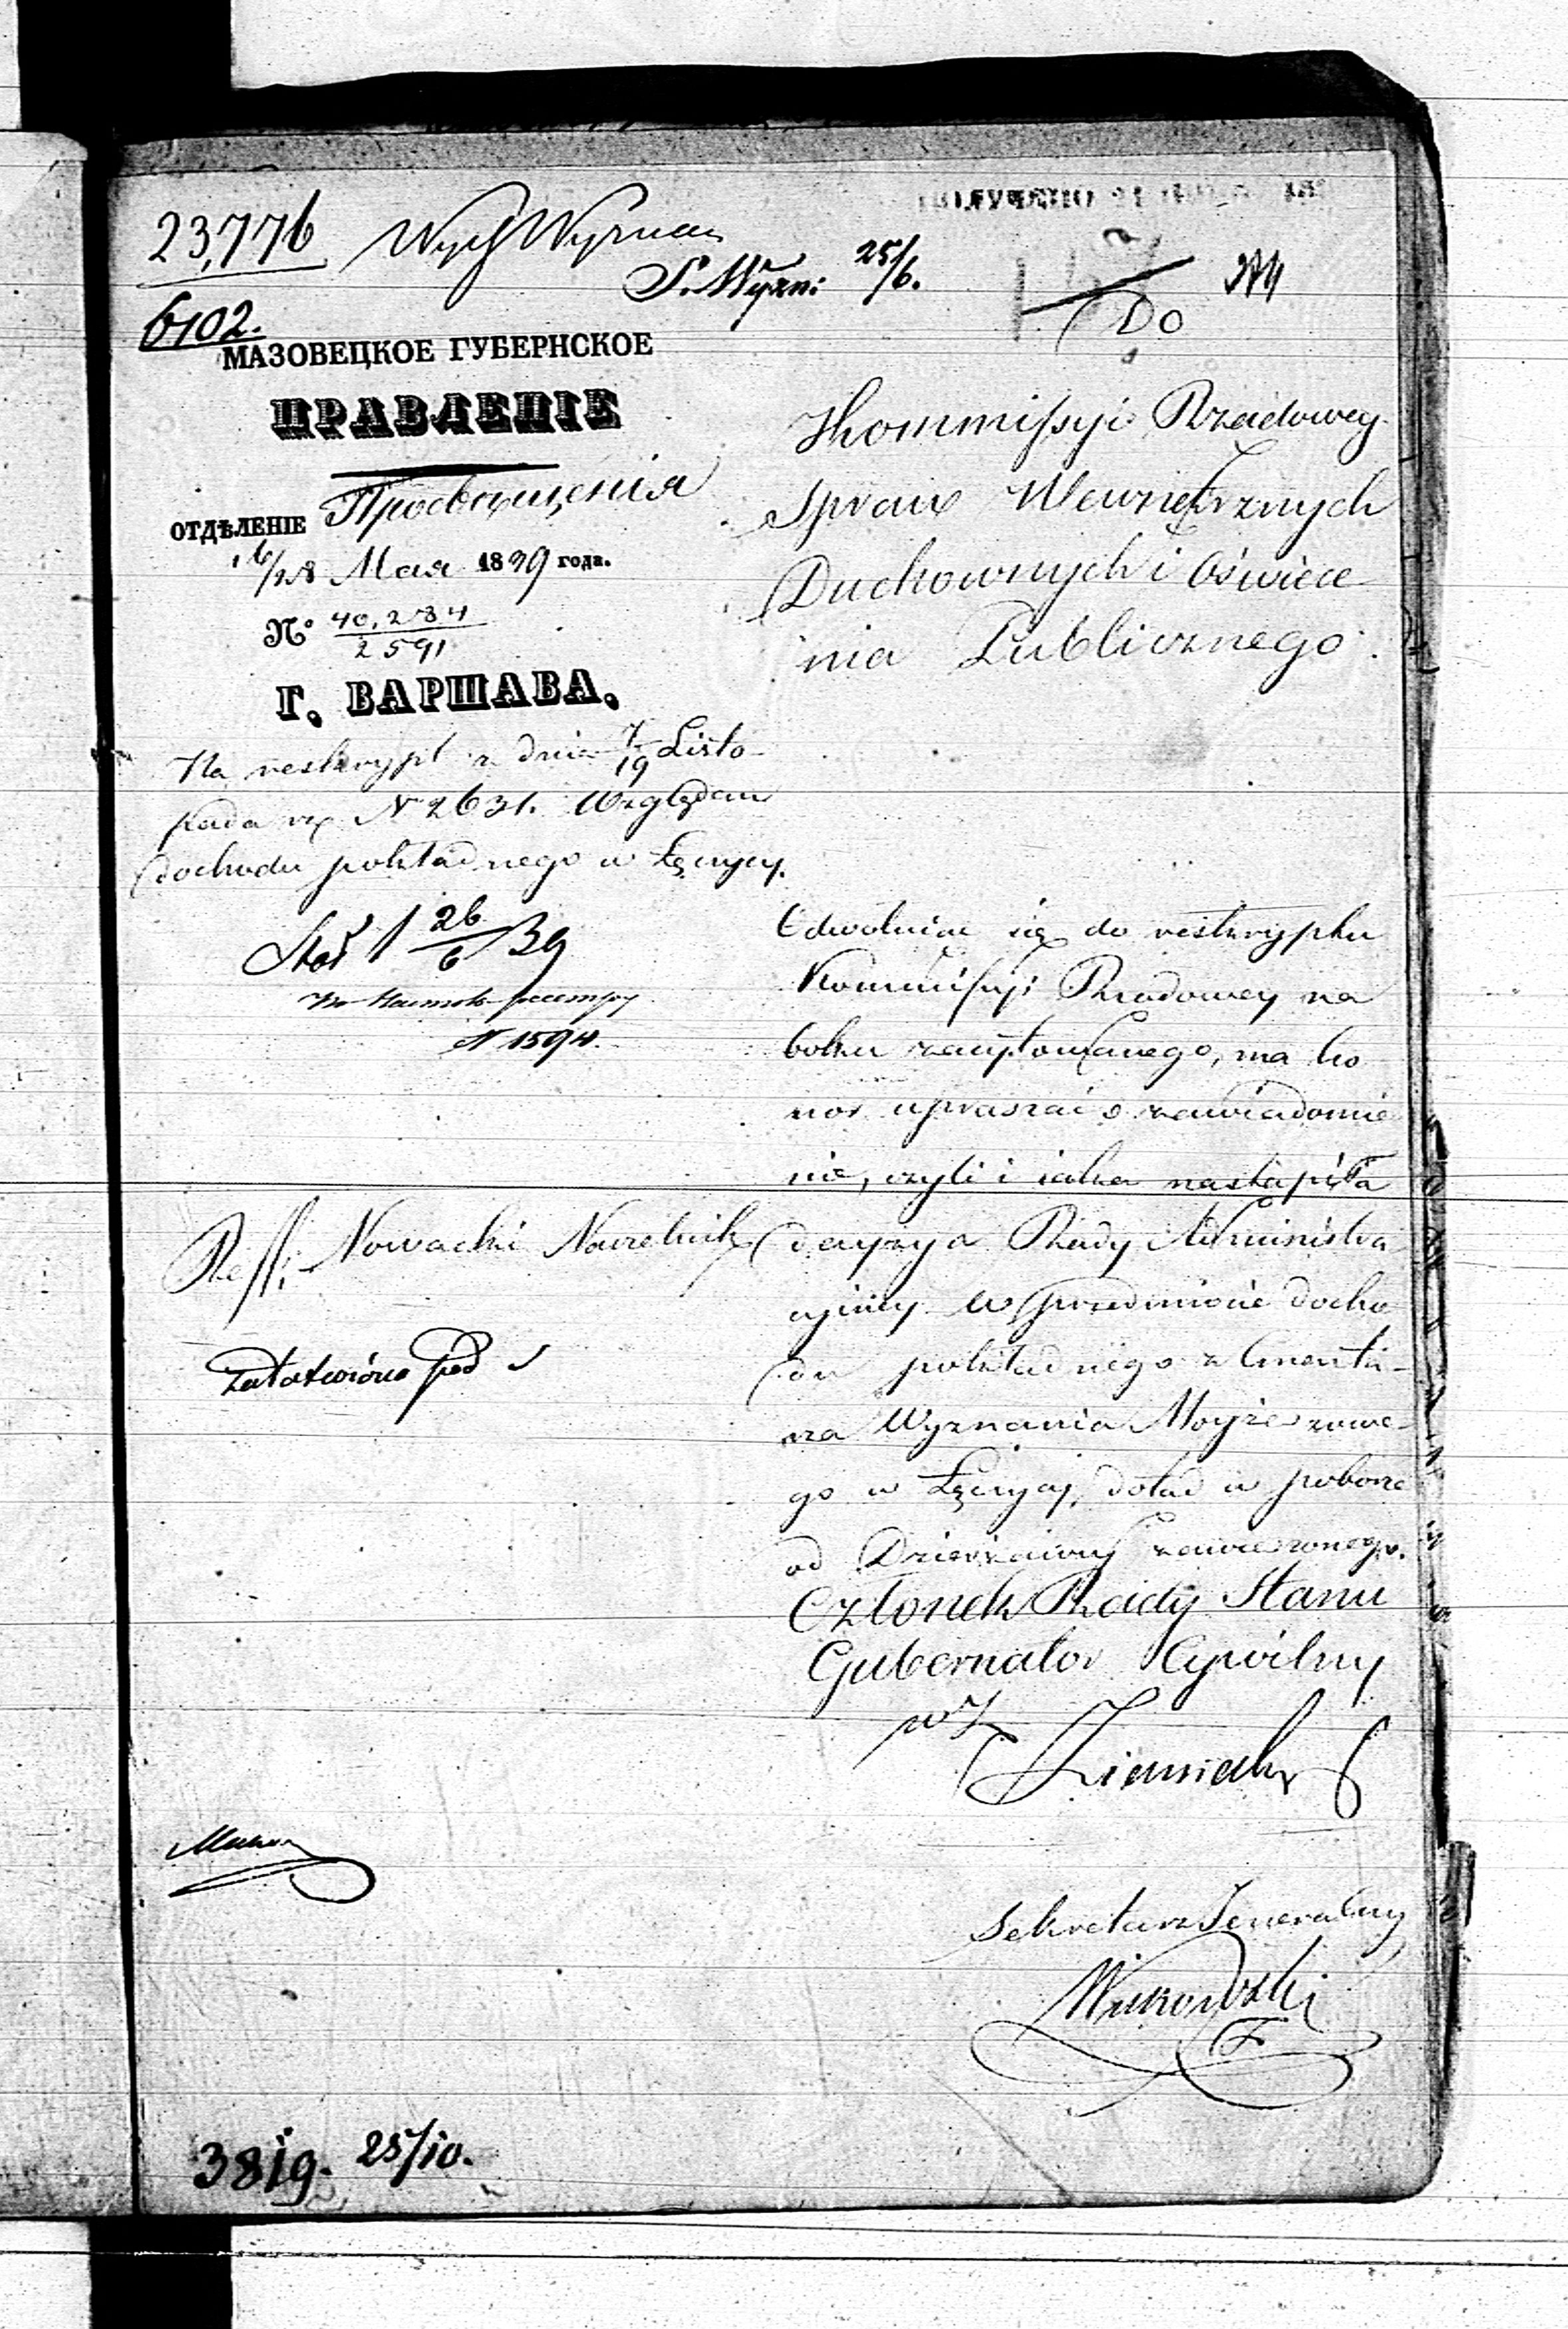 23,776 Wydz Wyznań
S. Wyzn: 25/6.
6102.
МАЗОВЕЦКОЕ ГУБЕРНСКОЕ
ПРАВЛЕНІЕ
ОТДѢЛЕНІЕ Просвѣщенія
16/28 Мая 1839 года.
№ 40,284/2591
Г. ВАРШАВА.
Na reskrypt z dnia 7/19 Listo-
pada rz N 2631. Względem
dochodu pokładnego w Łęczycy.
26/6 39
N 1594.
Reff: Nowacki Naczelnik
Załatwiono pod
Do
Kommissyi Rządowey
Spraw Wewnętrznych
Duchownych i Oświece-
nia Publicznego.
Odwołuiąc się do reskryptu
Kommissyi Rządowey na
boku zacytowanego, ma ho-
nor upraszać o zawiadomie-
nie, czyli i iaka nastąpiła
decyzya Rady Administra-
cyiney w przedmiocie docho-
du pokładnego z Cmenta-
rza Wyznania Moyżeszowe-
go w Łęczycy, dotąd w poborze
od Dzierżawcy zawieszonego.
Członek Rady Stanu
Gubernator Cywilny
wz
Sekretarz Jeneralny
3819. 25/10.